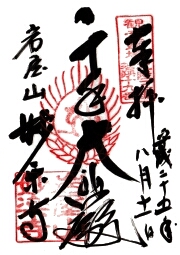 奉拝
平成二十五年
八月十一日
千手大悲殿
岩屋山
妙楽寺